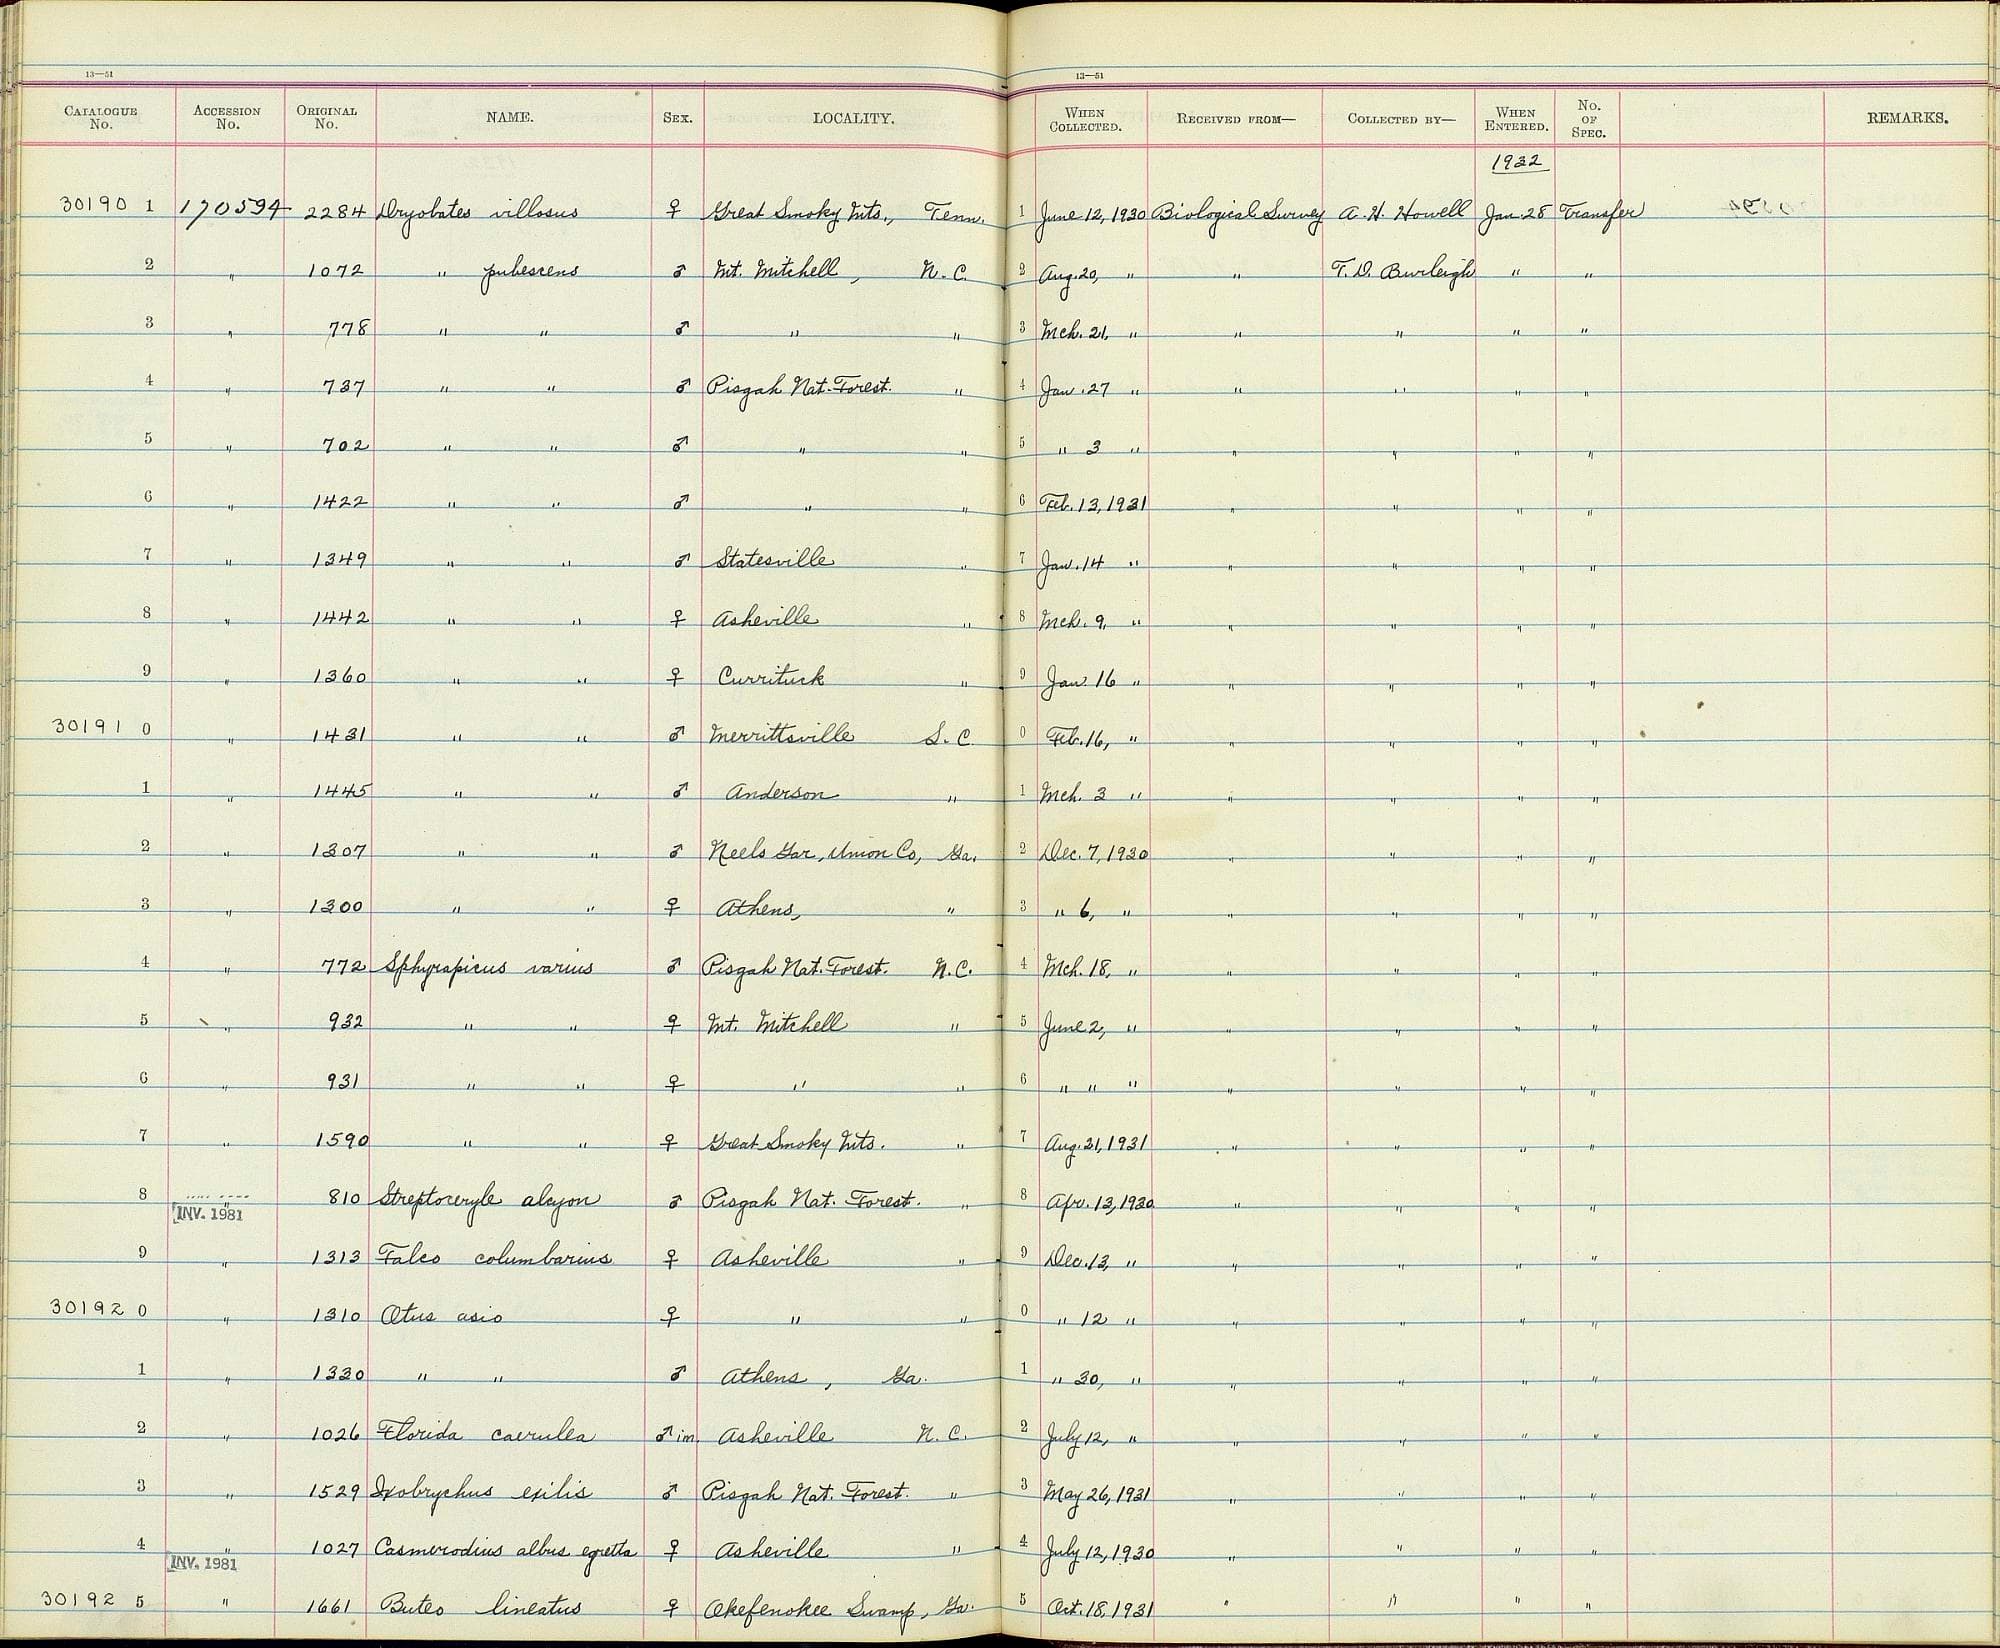 13—51 13—51
CATALOGUE No. ACCESSION No. ORIGINAL No. NAME. SEX. LOCALITY. WHEN COLLECTED. RECEIVED FROM— COLLECTED BY— WHEN ENTERED. No. OF SPEC. REMARKS.
1932
30190 1 170594 2284 Dryobates villosus ♀ Great Smoky Mts., Tenn. 1 June 12, 1930 Biological Survey A. H. Howell Jan. 28 Transfer
2 " 1072 " pubescens ♂ Mt. Mitchell, N. C. 2 Aug. 20, " " T. D. Burleigh " "
3 " 778 " " ♂ " " 3 Mch. 21, " " " " "
4 " 737 " " ♂ Pisgah Nat. Forest. " 4 Jan. 27 " " " " "
5 " 702 " " ♂ " " 5 " 3 " " " " "
6 " 1422 " " ♂ " " 6 Feb. 13, 1931 " " " "
7 " 1349 " " ♂ Statesville " 7 Jan. 14 " " " " "
8 " 1442 " " ♀ Asheville " 8 Mch. 9, " " " " "
9 " 1360 " " ♀ Currituck " 9 Jan. 16 " " " " "
30191 0 " 1431 " " ♂ Merrittsville S. C. 0 Feb. 16, " " " " "
1 " 1445 " " ♂ Anderson " 1 Mch. 3 " " " " "
2 " 1307 " " ♂ Neels Gar, Union Co, Ga. 2 Dec. 7, 1930 " " " "
3 " 1300 " " ♀ Athens, " 3 " 6, " " " " "
4 " 772 Sphyrapicus varius ♂ Pisgah Nat. Forest. N. C. 4 Mch. 18, " " " " "
5 " 932 " " ♀ Mt. Mitchell " 5 June 2, " " " " "
6 " 931 " " ♀ " " 6 " " " " " " "
7 " 1590 " " ♀ Great Smoky Mts. " 7 Aug. 21, 1931 " " " "
8 " 810 Streptoceryle alcyon ♂ Pisgah Nat. Forest. " 8 Apr. 13, 1930 " " " "
INV. 1981
9 " 1313 Falco columbarius ♀ Asheville " 9 Dec. 13, " " " " "
30192 0 " 1310 Otus asio ♀ " " 0 " 12 " " " " "
1 " 1330 " " ♂ Athens, Ga. 1 " 30, " " " " "
2 " 1026 Florida caerulea ♂ im. Asheville N. C. 2 July 12, " " " " "
3 " 1529 Ixobrychus exilis ♂ Pisgah Nat. Forest. " 3 May 26, 1931 " " " "
4 " 1027 Casmerodius albus egretta ♀ Asheville " 4 July 12, 1930 " " " "
INV. 1981
30192 5 " 1661 Buteo lineatus ♀ Okefenokee Swamp, Ga. 5 Oct. 18, 1931 " " " "